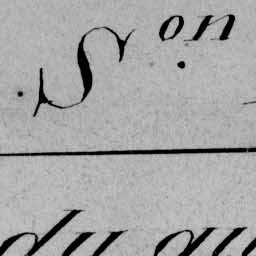 S.on
du qu